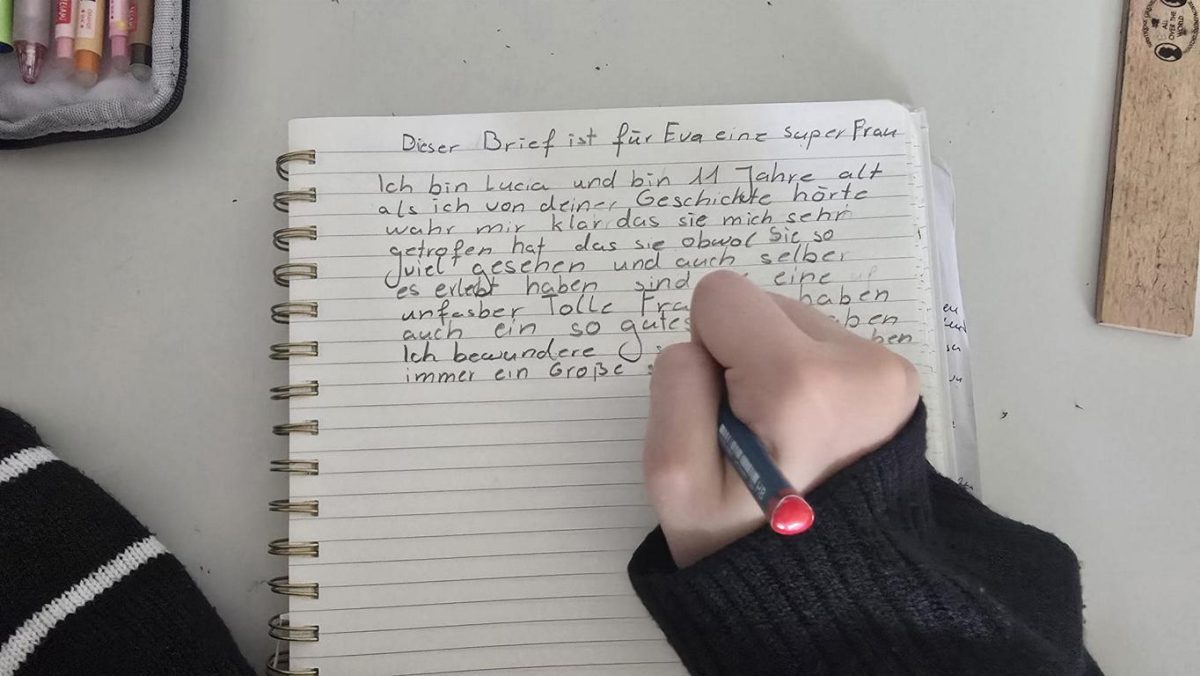 Dieser Brief ist für Eva eine super Frau
Ich bin Lucia und bin 11 Jahre alt
als ich von deiner Geschichte hörte
wahr mir klar das sie mich sehr
getrofen hat das sie obwol Sie so
viel gesehen und auch selber
es erlebt haben sind eine
unfasber Tolle haben
auch ein so gutes
Ich bewundere
immer ein Große
ALL OVER THE WORLD
HB